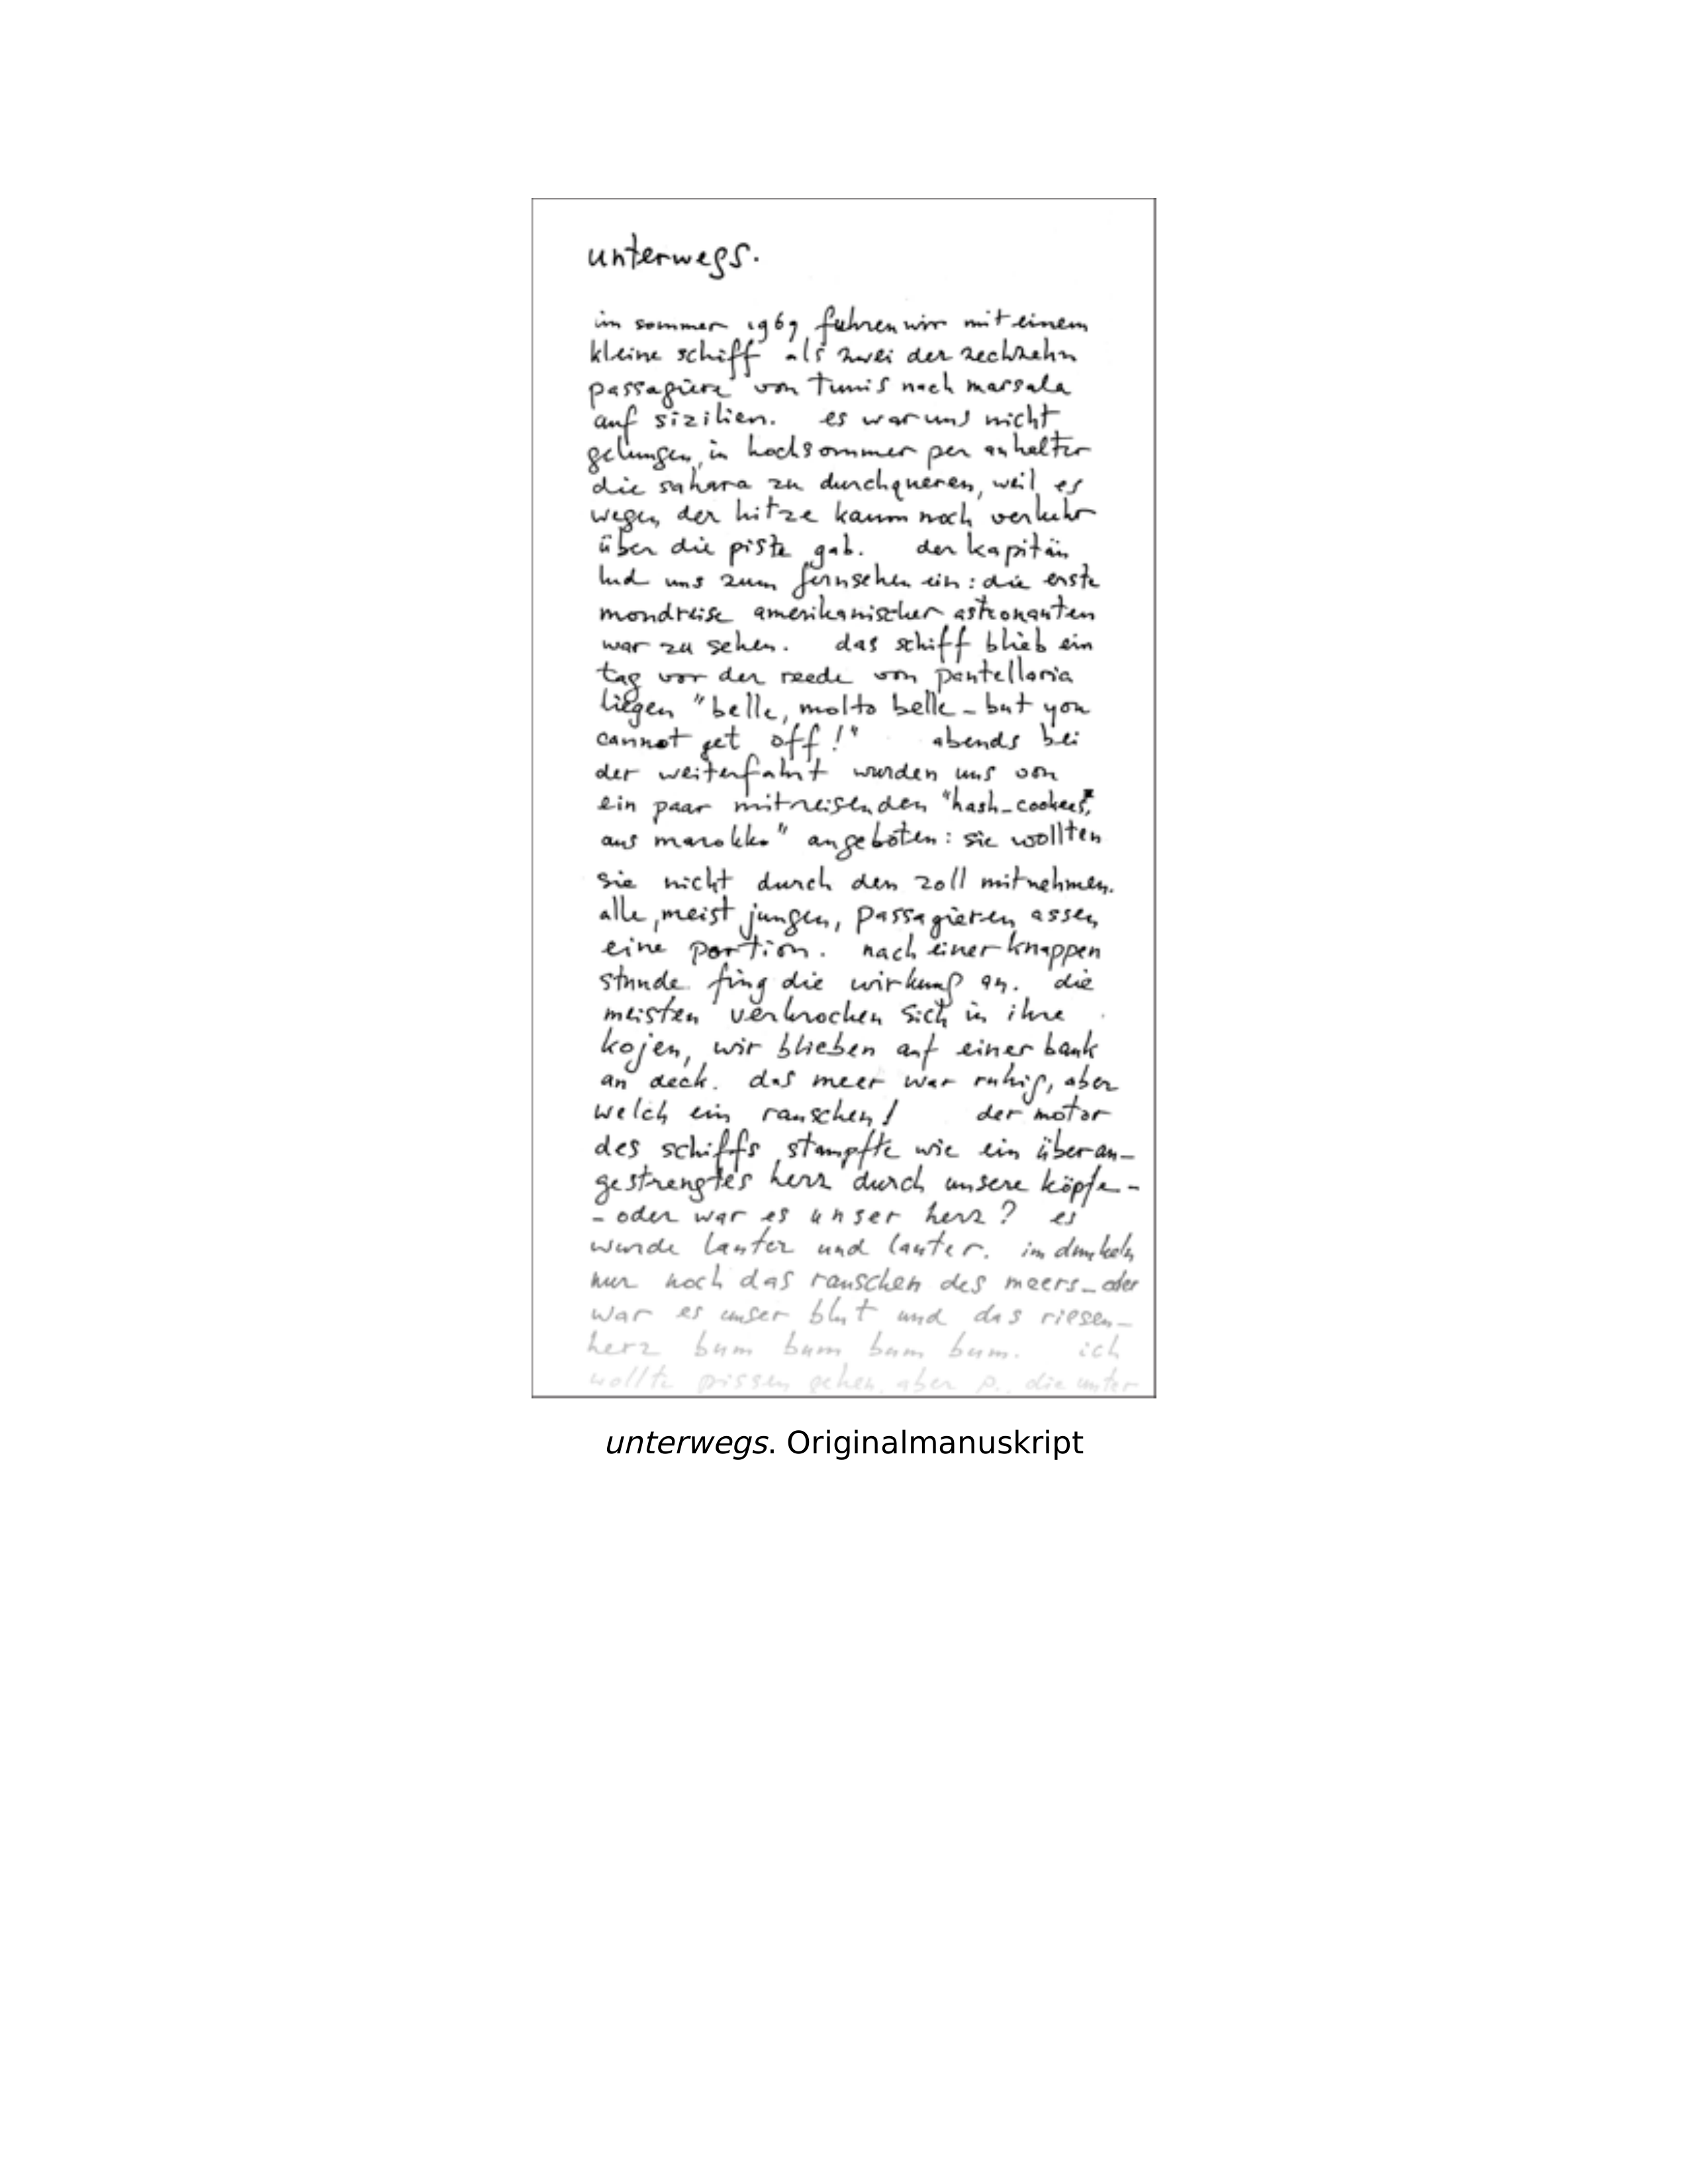 unterwegs.
im sommer 1969 fuhren wir mit einem
kleine schiff als zwei der sechzehn
passagiere von tunis nach marsala
auf sizilien. es war uns nicht
gelungen, in hochsommer per anhalter
die sahara zu durchqueren, weil es
wegen der hitze kaum noch verkehr
über die piste gab. der kapitän
lud uns zum fernsehen ein: die erste
mondreise amerikanischer astronauten
war zu sehen. das schiff blieb ein
tag vor der reede von pantellaria
liegen "belle, molto belle - but you
cannot get off!" abends bei
der weiterfahrt wurden uns von
ein paar mitreisenden "hash-cookees,
aus marokko" angeboten: sie wollten
sie nicht durch den zoll mitnehmen.
alle, meist jungen, passagieren assen
eine portion. nach einer knappen
stunde fing die wirkung an. die
meisten verkrochen sich in ihre
kojen, wir blieben auf einer bank
an deck. das meer war ruhig, aber
welch ein rauschen! der motor
des schiffs stampfte wie ein überan-
gestrengtes herz durch unsere köpfe -
- oder war es unser herz? es
wurde lauter und lauter. im dunkeln
nur noch das rauschen des meers - oder
war es unser blut und das riesen-
herz bum bum bum bum. ich
wollte pissen gehen, aber p., die unter
unterwegs. Originalmanuskript